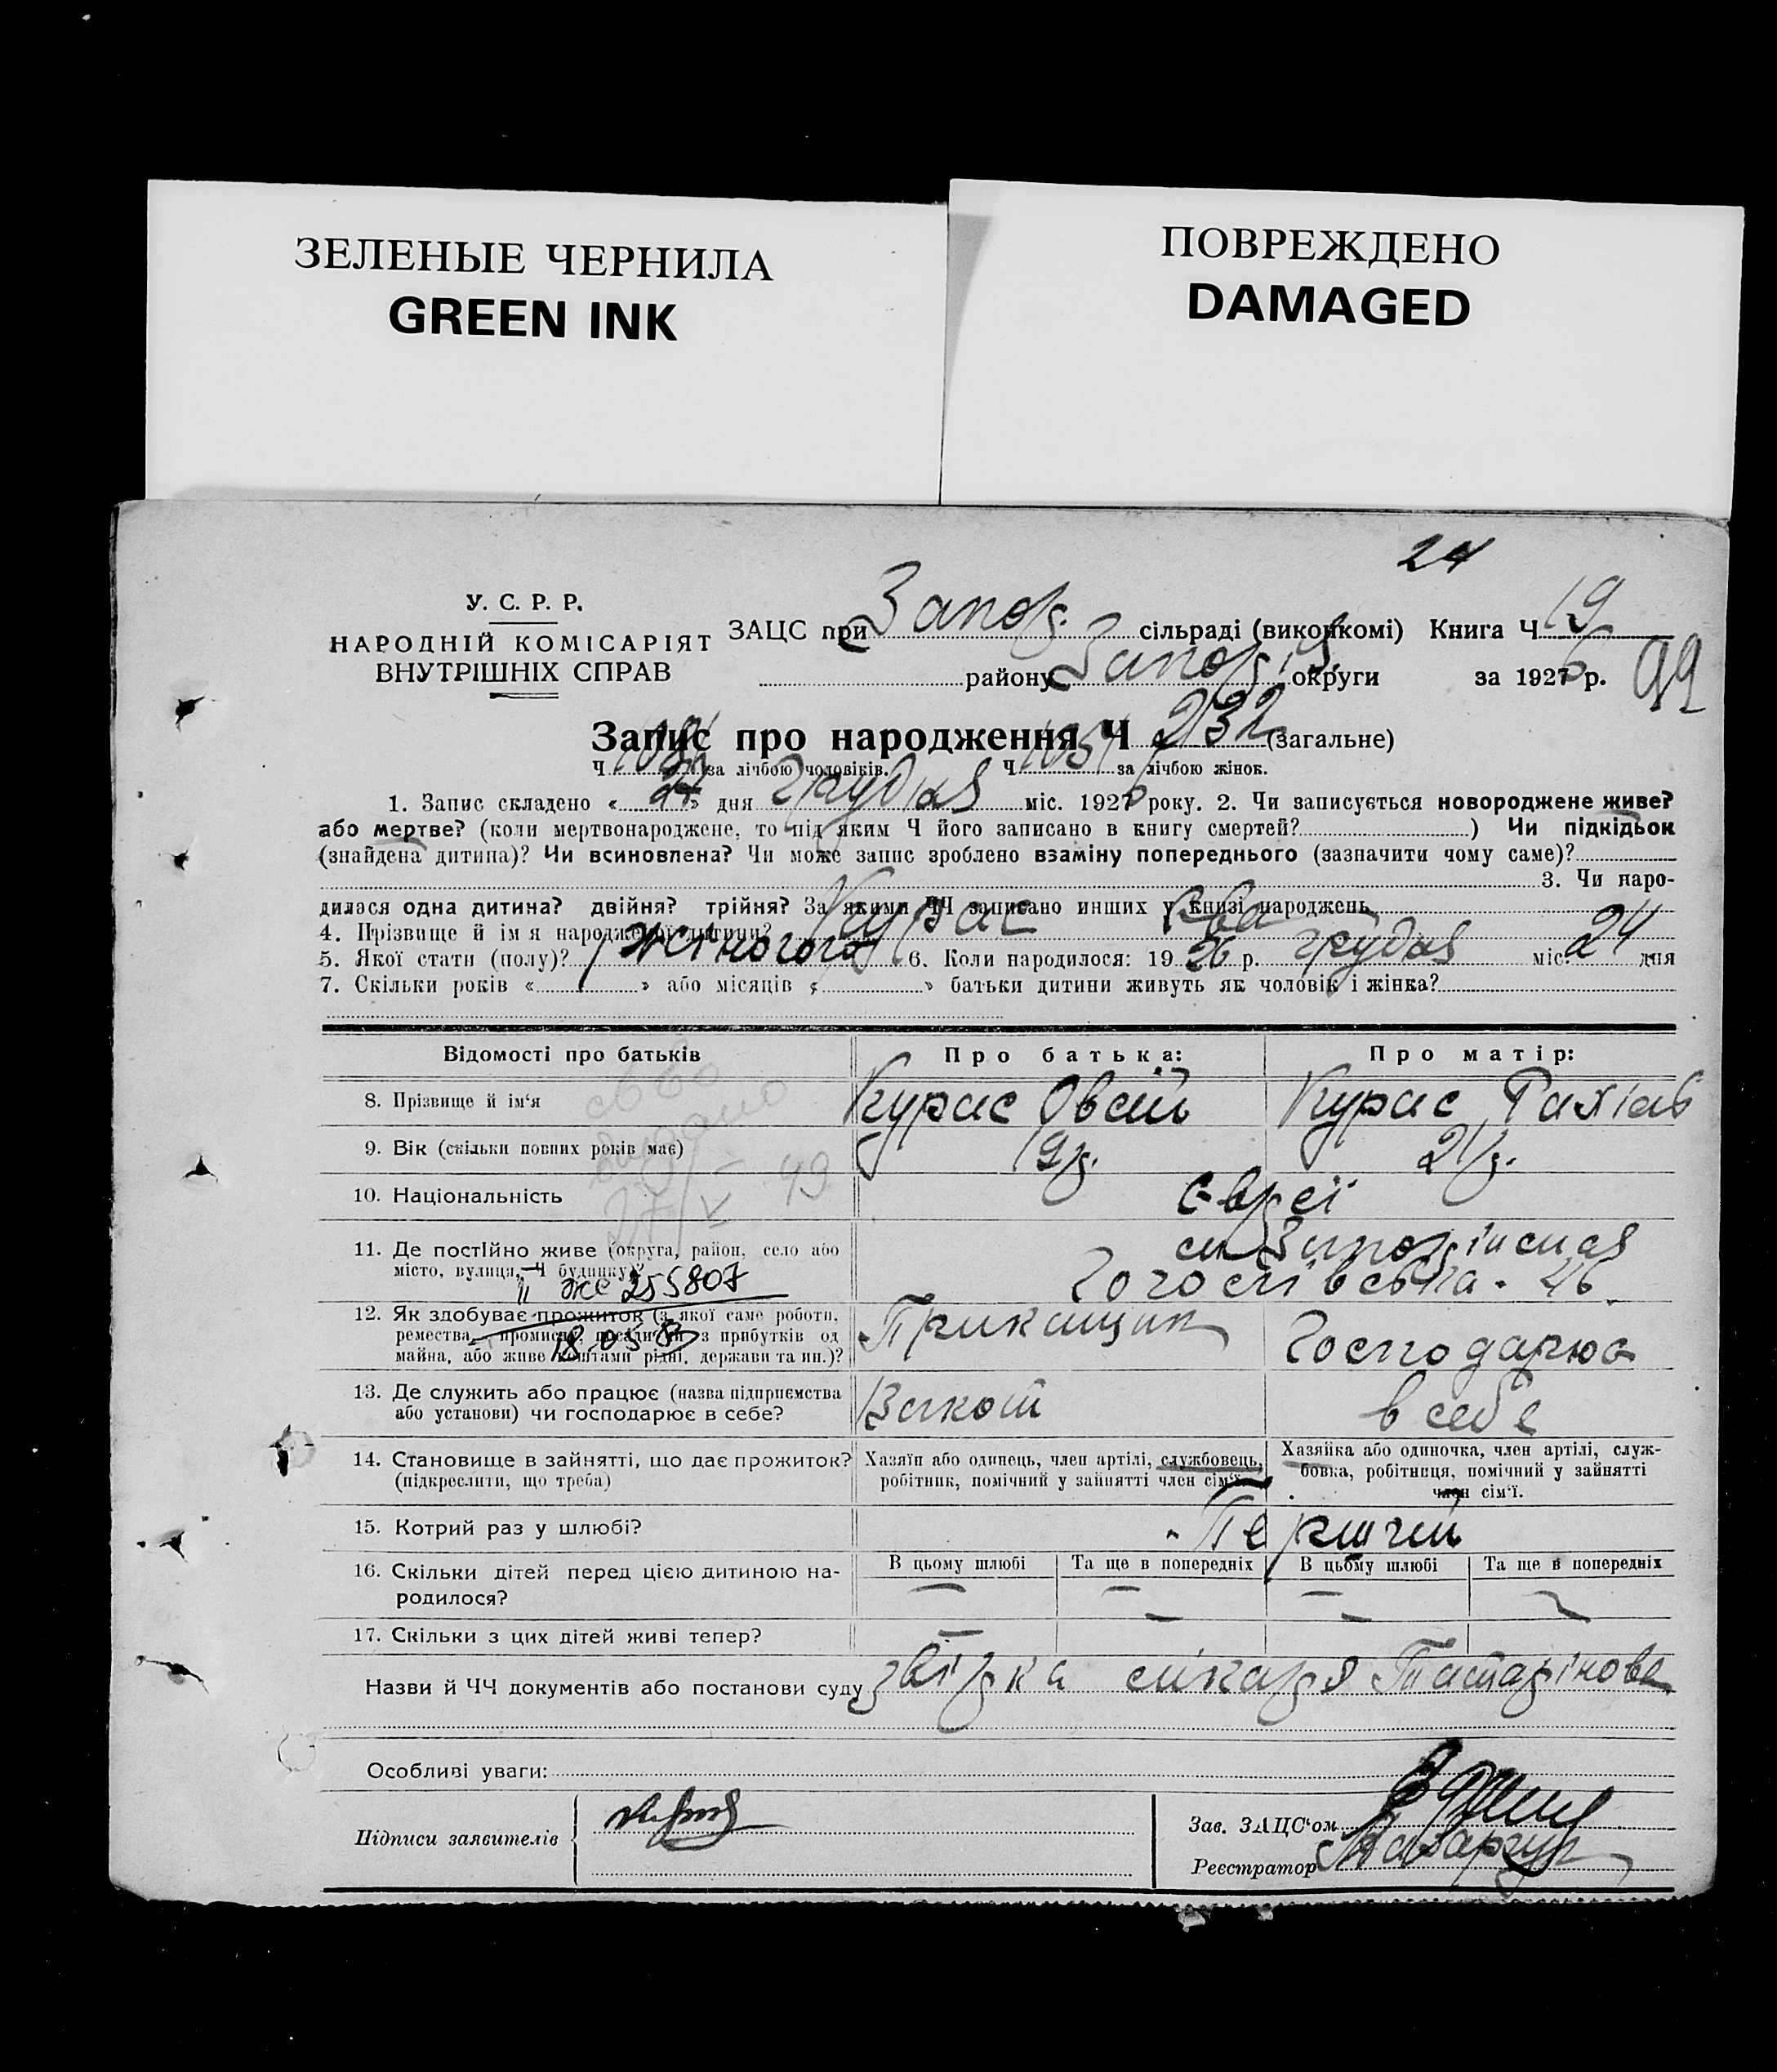 ЗЕЛЕНЫЕ ЧЕРНИЛА
GREEN INK
ПОВРЕЖДЕНО
DAMAGED
24
У. С. Р. Р.
НАРОДНІЙ КОМІСАРІЯТ
ВНУТРІШНІХ СПРАВ
ЗАЦС при Запор. сільраді (виконкомі) Книга Ч 19
району Запоріз. округи за 1926 р. 99
Запис про народження Ч 232 (загальне)
Ч за лічбою чоловіків. Ч за лічбою жінок.
1. Запис складено « » дня Грудня міс. 1926 року. 2. Чи записується новороджене живе?
або мертве? (коли мертвонароджене, то під яким Ч його записано в книгу смертей? ) Чи підкідьок
(знайдена дитина)? Чи всиновлена? Чи може запис зроблено взаміну попереднього (зазначити чому саме)?
3. Чи наро-
дилася одна дитина? двійня? трійня? За якими ЧЧ записано инших у книзі народжень
4. Прізвище й ім'я народженої дитини? Курас Єва
5. Якої стати (полу)? жіночого 6. Коли народилося: 1926 р. грудня міс. 24 дня
7. Скільки років « » або місяців « » батьки дитини живуть як чоловік і жінка?
Відомості про батьків Про батька: Про матір:
8. Прізвище й ім'я Курас Овсій Курас Рахіль
9. Вік (скільки повних років має) 19 р. 21 р.
10. Національність Євреї
св во
видано
27/V 49
11. Де постійно живе (округа, район, село або
місто, вулиця, Ч будинку)?
ІІ ЖС 255807
46
12. Як здобуває прожиток (з якої саме роботи,
ремества, промислу, посади чи з прибутків од
майна, або живе коштами рідні, держави та ин.)?
Приказщик Господарює
13. Де служить або працює (назва підприємства
або установи) чи господарює в себе?
в себе
14. Становище в зайнятті, що дає прожиток?
(підкреслити, що треба)
Хазяїн або одинець, член артілі, службовець,
робітник, помічний у зайнятті член сім'ї.
Хазяйка або одиночка, член артілі, служ-
бовка, робітниця, помічний у зайнятті
член сім'ї.
15. Котрий раз у шлюбі? Перший
16. Скільки дітей перед цією дитиною на-
родилося?
В цьому шлюбі Та ще в попередніх В цьому шлюбі Та ще в попередніх
17. Скільки з цих дітей живі тепер?
Назви й ЧЧ документів або постанови суду довідка лікаря Татарінова
Особливі уваги:
Підписи заявителів
Зав. ЗАЦС'ом
Реєстратор